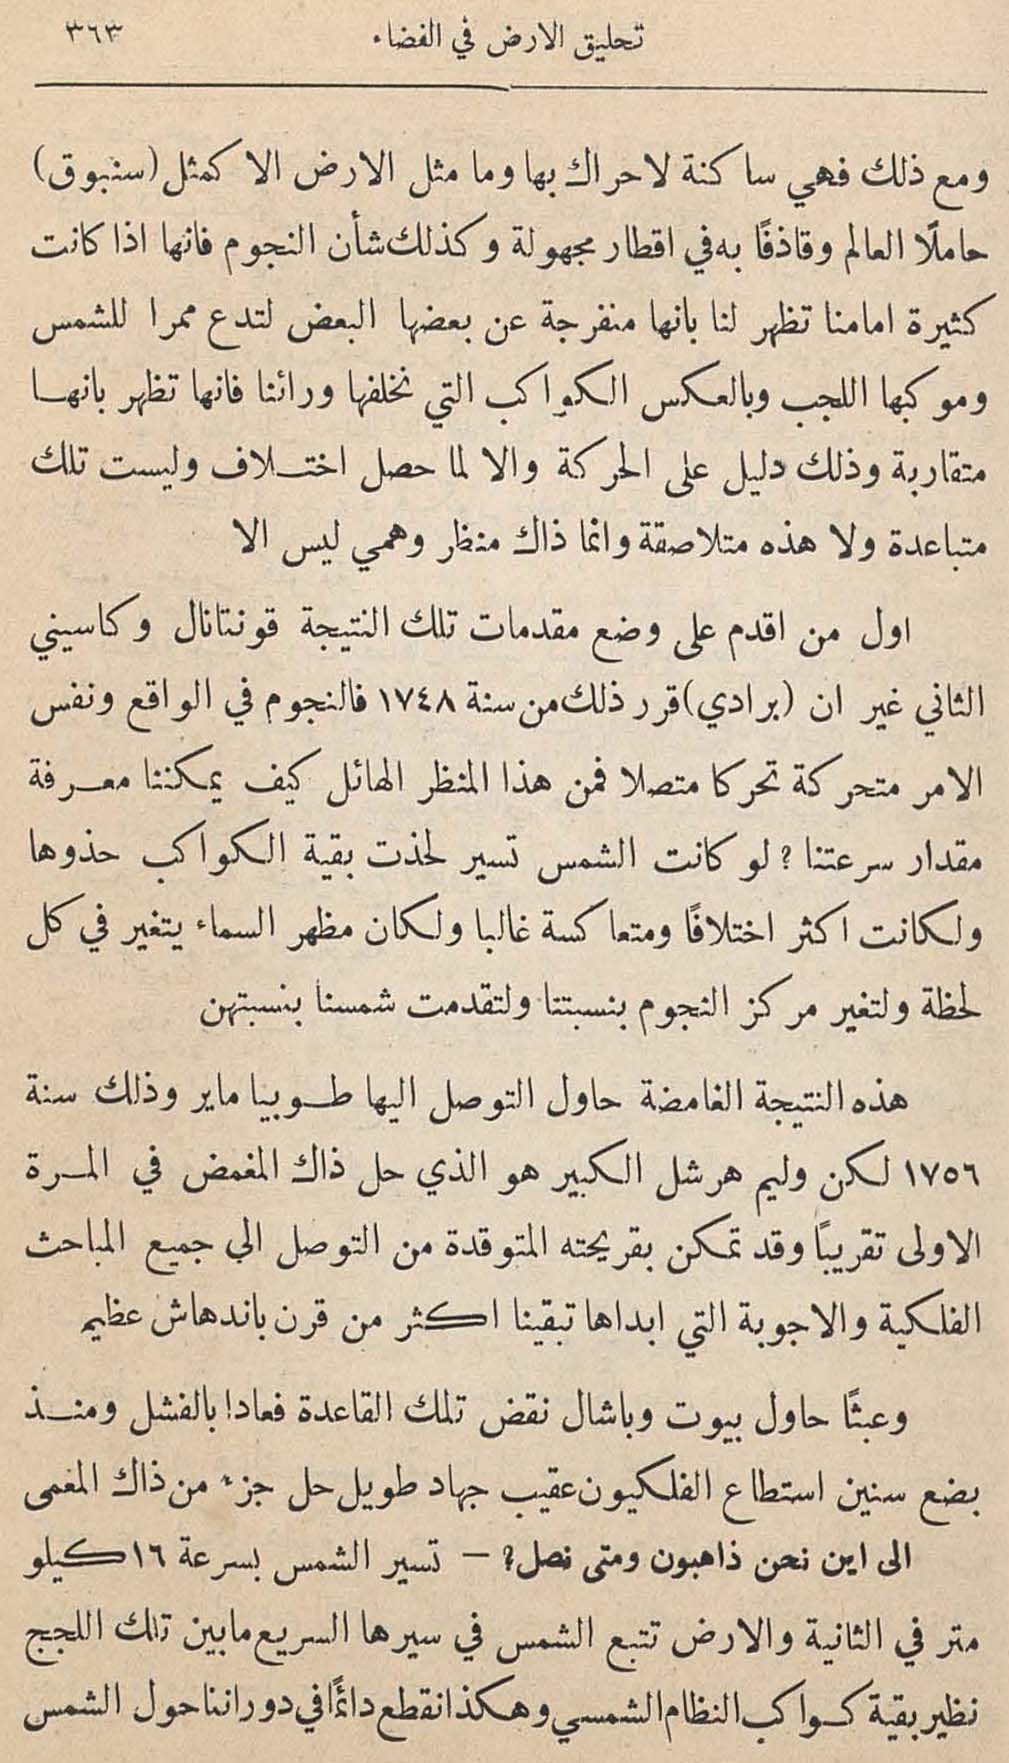 تحليق الارض في الفضاء ٣٦٣
ومع ذلك فهي ساكنة لاحراك بها وما مثل الارض الا كمثل (سنبوق)
حاملًا العالم وقاذفًا به في اقطار مجهولة وكذلك شأن النجوم فانها اذا كانت
كثيرة امامنا تظهر لنا بانها منفرجة عن بعضها البعض لتدع ممرا للشمس
وموكبها اللجب وبالعكس الكواكب التي نخلفها ورائنا فانها تظهر بانهـا
متقاربة وذلك دليل على الحركة والا لما حصل اختـلاف وليست تلك
متباعدة ولا هذه متلاصقة وانما ذاك منظر وهمي ليس الا
اول من اقدم على وضع مقدمات تلك النتيجة قونتانال وكاسيني
الثاني غير ان (برادي) قرر ذلك من سنة ١٧٤٨ فالنجوم في الواقع ونفس
الامر متحركة تحركا متصلا فمن هذا المنظر الهائل كيف يمكننا معـرفة
مقدار سرعتنا ؟ لو كانت الشمس تسير لحذت بقية الكواكب حذوها
ولكانت اكثر اختلافًا ومتعاكسة غالبا ولكان مظهر السماء يتغير في كل
لحظة ولتغير مركز النجوم بنسبتنا ولتقدمت شمسنا بنسبتهن
هذه النتيجة الغامضة حاول التوصل اليها طـوبيا ماير وذلك سنة
١٧٥٦ لكن وليم هرشل الكبير هو الذي حل ذاك المغمض في المـرة
الاولى تقريبًا وقد تمكن بقريحته المتوقدة من التوصل الى جميع المباحث
الفلكية والاجوبة التي ابداها تبقينا اكثر من قرن باندهاش عظيم
وعبثًا حاول بيوت وباشال نقض تلك القاعدة فعادا بالفشل ومنـذ
بضع سنين استطاع الفلكيون عقيب جهاد طويل حل جزء من ذاك المغمى
الى اين نحن ذاهبون ومتى نصل؟ — تسير الشمس بسرعة ١٦ كيلو
متر في الثانية والارض تتبع الشمس في سيرها السريع مابين تلك اللجج
نظير بقية كـواكب النظام الشمسي وهكذا نقطع دائمًا في دوراننا حول الشمس